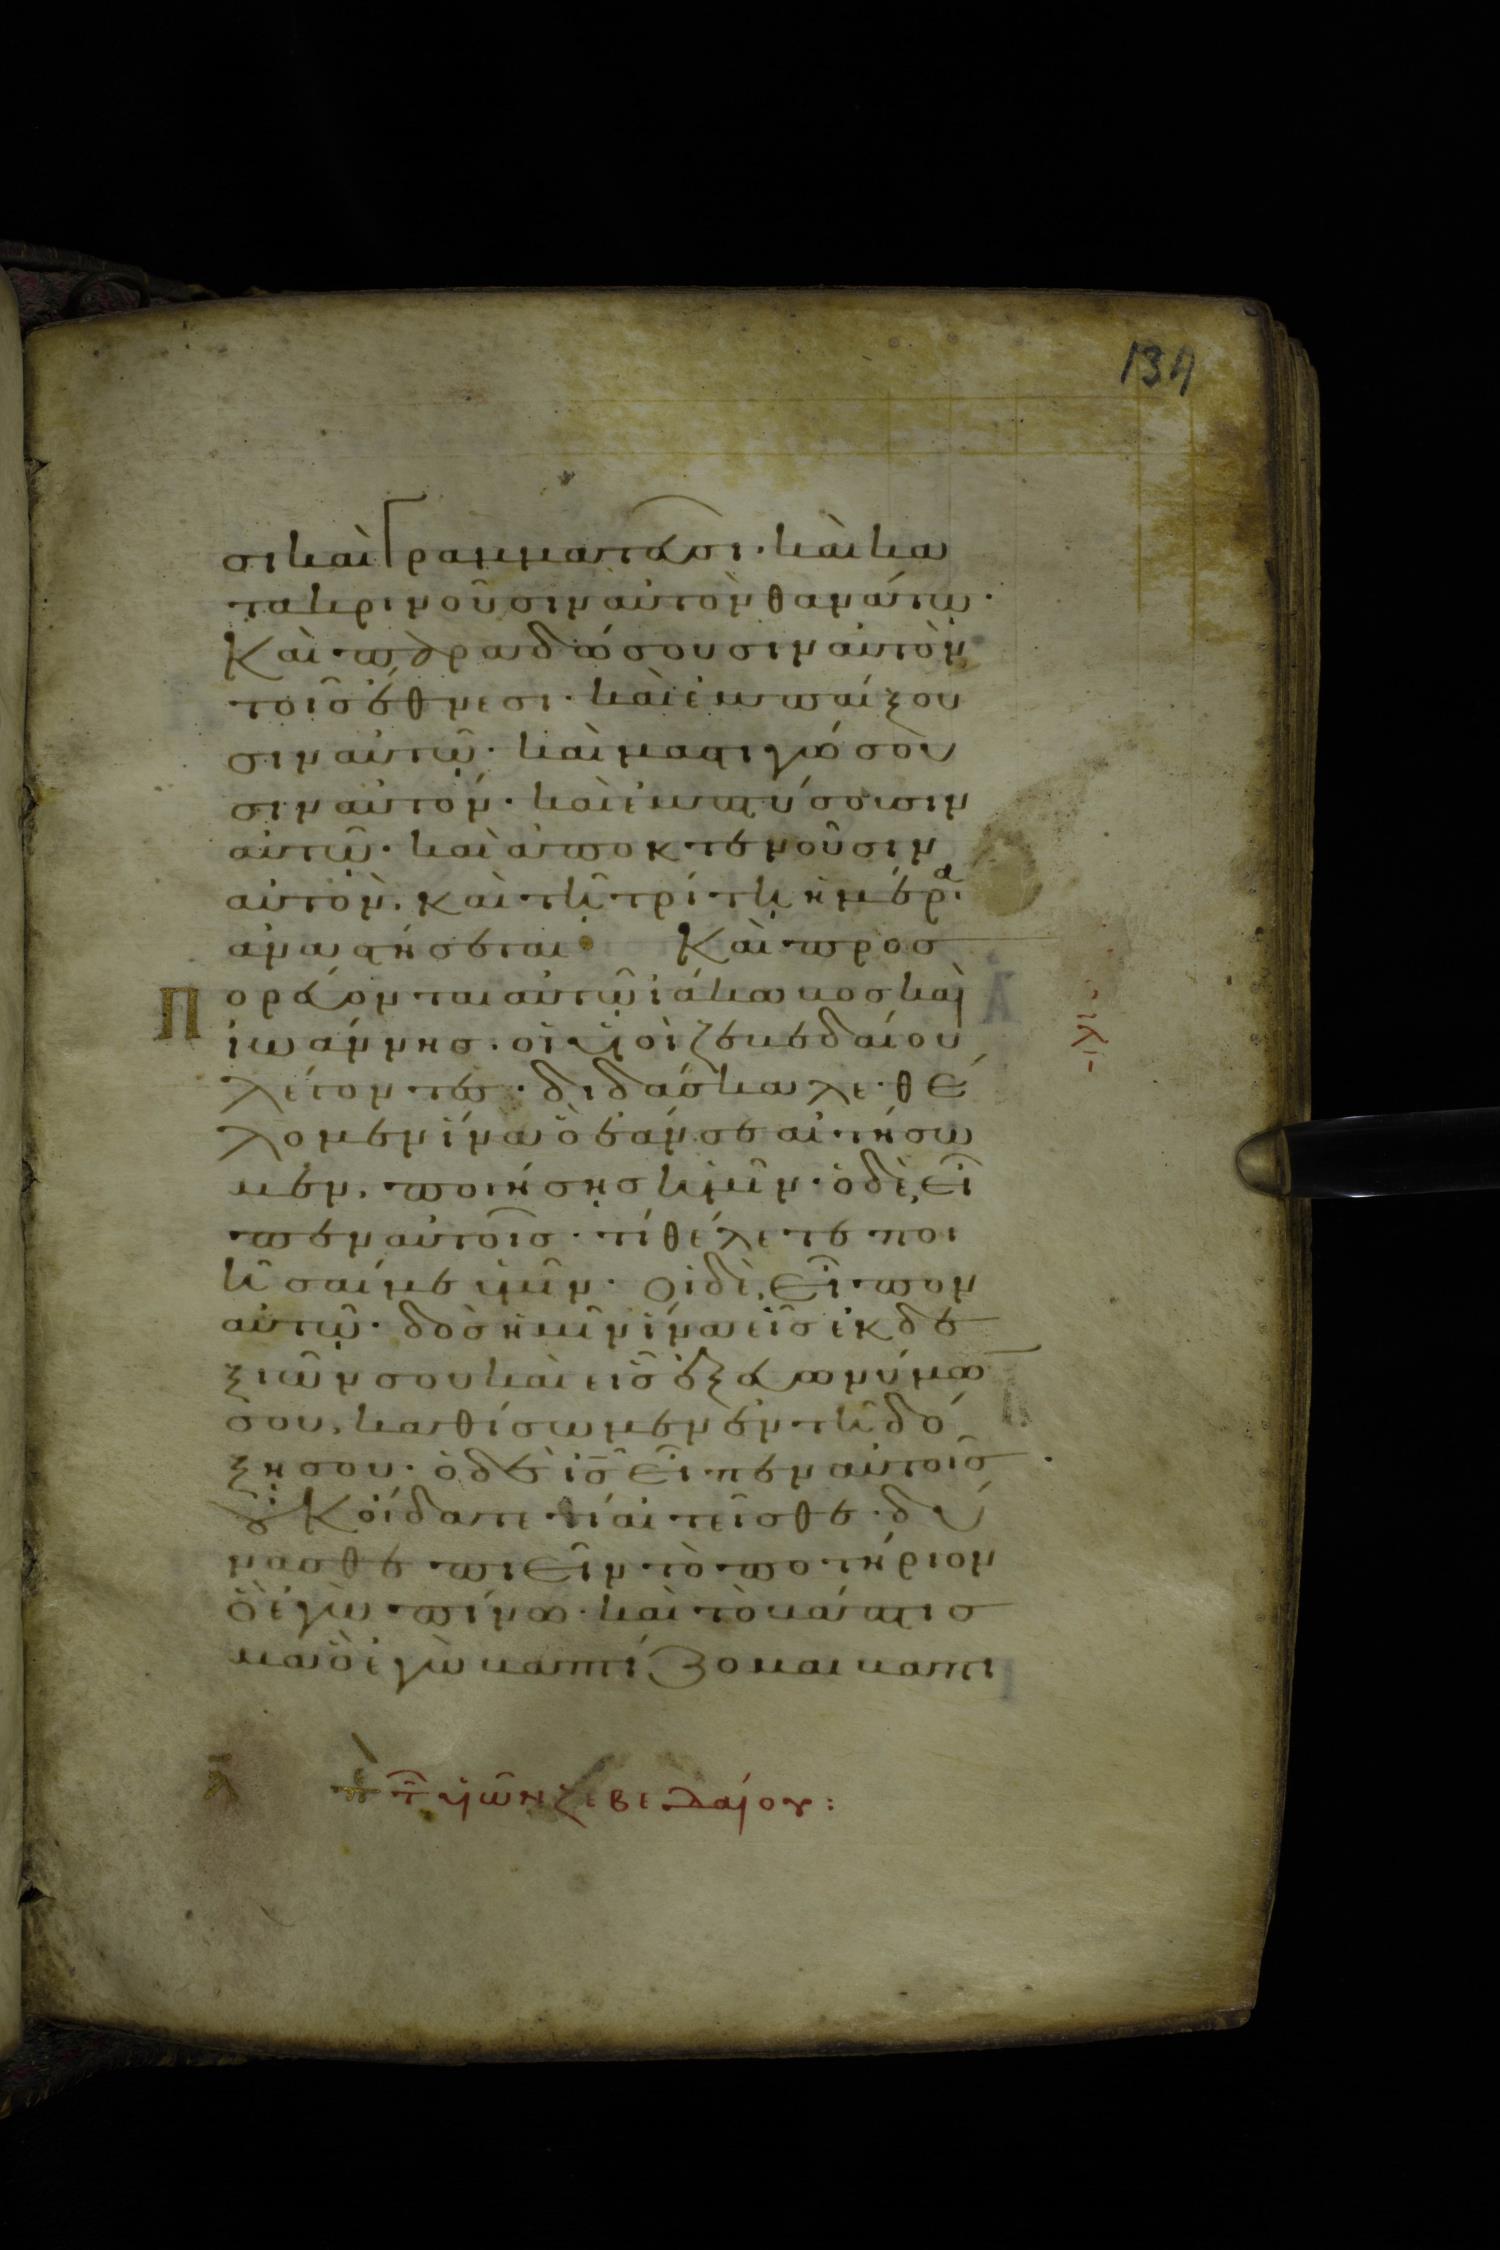 134
σι καὶ γραμματεῦσι· καὶ κα
τακρινοῦσιν αὐτὸν θανάτω·
Καὶ παραδώσουσιν αὐτὸν
τοῖς ἔθνεσι· καὶ ἐμπαίξου
σιν αὐτῶ· καὶ μαστιγώσου
σιν αὐτόν· καὶ ἐμπτύσουσιν
αὐτῶ· καὶ ἀποκτενοῦσιν
αὐτὸν. καὶ τῆ τρίτη ἡμέρα.
ἀναστήσεται Καὶ προσ
Π ορεύονται αὐτῶ ἰάκωβος καὶ
ἰωάννης. οἱ υἱοὶ ζεβεδαίου
λέγοντες· διδάσκαλε· θέ
λομεν ἵνα ὃ ἐάν σε αἰτήσω
μεν. ποιήσης ἡμῖν· ὁ δὲ εἶ
πεν αὐτοῖς· τί θέλετε ποι
ῆσαί με ὑμῖν· Οἱ δὲ εἶπον
αὐτῶ· δὸς ἡμῖν ἵνα εἷς ἐκ δε
ξιῶν σου καὶ εἷς ἐξ εὐωνύμω
σου, καθίσωμεν ἐν τῆ δό
ξη σου· ὁ δὲ ἰς εἶπεν αὐτοῖς
οὐκ οἴδατε τί αἰτεῖσθε· δύ
νασθε πιεῖν τὸ ποτήριον
ὃ ἐγὼ πίνω· καὶ τὸ βάπτισ
μα ὃ ἐγὼ βαπτίζομαι βαπτι
λ πε τ υἱῶν ζεβεδαίου: